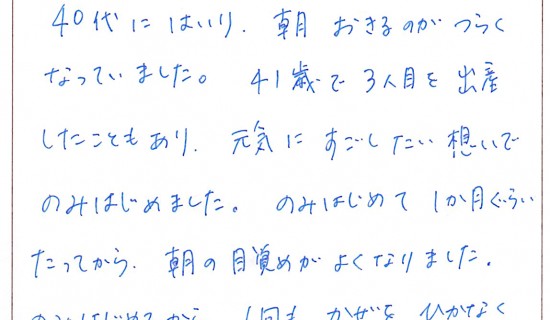 40代にはいり、朝 おきるのが つらく
なっていました。 41歳で 3人目を 出産
したこともあり、元気に すごしたい 想いで
のみはじめました。 のみはじめて 1か月ぐらい
たってから、朝の目覚めが よくなりました。
のみはじめてから、1回も かぜを ひかなく